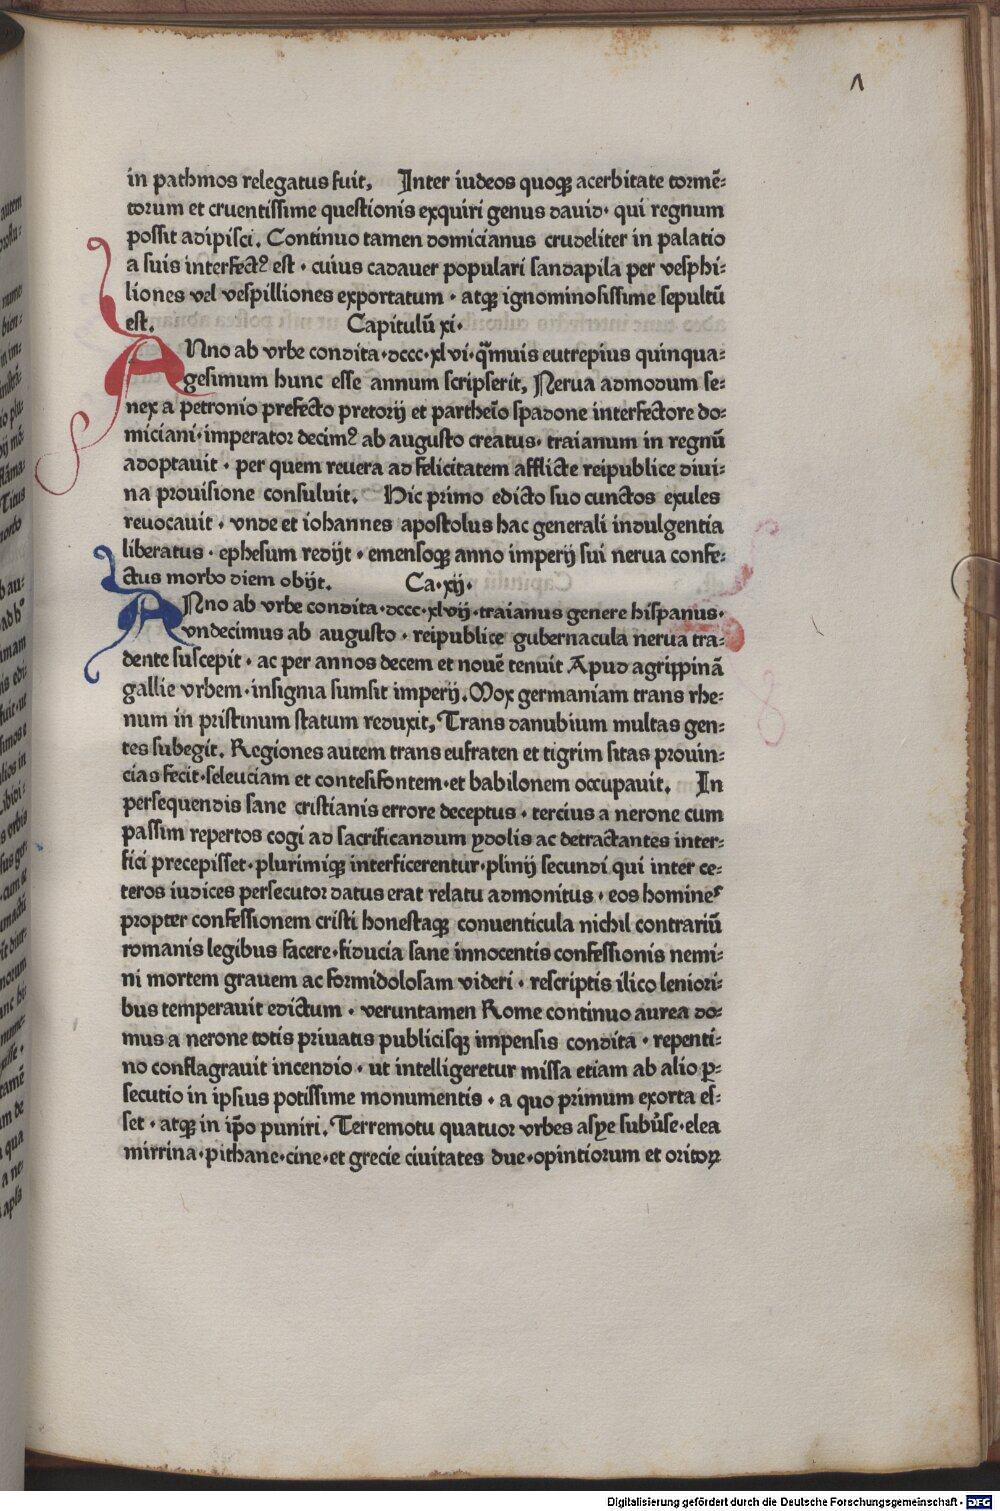 in pathmos relegatus fuit. Inter iudeos quoqꝫ acerbitate tormē⸗
torum et cruentissime questionis exquiri genus dauid· qui regnum
possit adipisci. Continuo tamen domicianus crudeliter in palatio
a suis interfectꝰ est · cuius cadauer populari sandapila per vesphi⸗
liones vel vespilliones exportatum · atqꝫ ignominosissime sepultū
est. Capitulū xi·
ANno ab vrbe condita·dccc·xlvi·qͣmuis eutrepius quinqua⸗
gesimum hunc esse annum scripserit, Nerua admodum se⸗
nex a petronio prefecto pretorij et partheīo spadone interfectore do⸗
miciani·imperator decimꝰ ab augusto creatus· traianum in regnū
adoptauit · per quem reuera ad felicitatem afflicte reipublice diui⸗
na prouisione consuluit. Hic primo edicto suo cunctos exules
reuocauit · vnde et iohannes apostolus hac generali indulgentia
liberatus · ephesum redijt · emensoqꝫ anno imperij sui nerua confe⸗
ctus morbo diem obijt. Ca·xij·
ANno ab vrbe condita·dccc·xlvij·traianus genere hispanus·
vndecimus ab augusto · reipublice gubernacula nerua tra⸗
dente suscepit · ac per annos decem et nouē tenuit Apud agrippinā
gallie vrbem·insignia sumsit imperij. Mox germaniam trans rhe⸗
num in pristinum statum reduxit, Trans danubium multas gen⸗
tes subegit. Regiones autem trans eufraten et tigrim sitas prouin⸗
cias fecit·seleuciam et contesifontem·et babilonem occupauit. In
persequendis sane cristianis errore deceptus · tercius a nerone cum
passim repertos cogi ad sacrificandum ydolis ac detractantes inter⸗
fici precepisset·plurimiqꝫ interficerentur·plinij secundi qui inter ce⸗
teros iudices persecutor datus erat relatu admonitus · eos homines
propter confessionem cristi honestaqꝫ conuenticula nichil contrariū
romanis legibus facere·fiducia sane innocentis confessionis nemi⸗
ni mortem grauem ac formidolosam videri · rescriptis ilico leniori⸗
bus temperauit edictum · veruntamen Rome continuo aurea do⸗
mus a nerone totis priuatis publicisqꝫ impensis condita · repenti⸗
no conflagrauit incendio · ut intelligeretur missa etiam ab alio ꝑ⸗
secutio in ipsius potissime monumentis · a quo primum exorta es⸗
set · atqꝫ in ip̄o puniri. Terremotu quatuor vrbes asye subu̓se·elea
mirrina·pithane·cine·et grecie ciuitates due·opintiorum et oritoꝝ
Digitalisierung gefördert durch die Deutsche Forschungsgemeinschaft - DFG